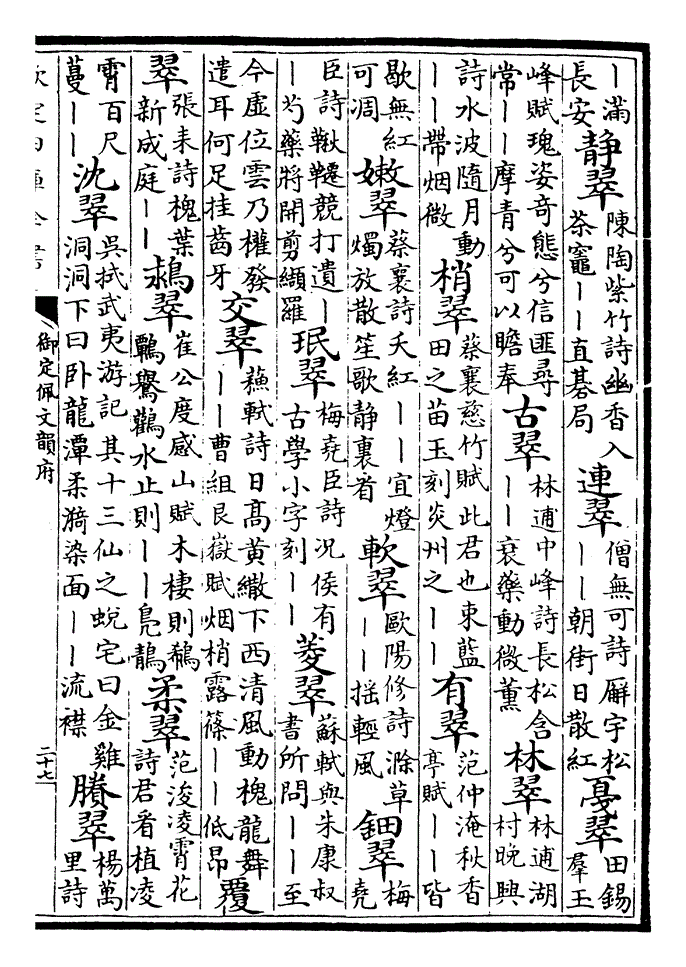 ｜滿
長安
靜翠
陳陶紫竹詩幽香入
茶竈｜｜直碁局
連翠
僧無可詩廨宇松
｜｜朝街日散紅
戞翠
田錫
羣玉
峰賦瑰姿奇態兮信匪尋
常｜｜摩青兮可以瞻奉
古翠
林逋中峰詩長松含
｜｜衰藥動微薰
林翠
林逋湖
村晚興
詩水波隨月動
｜｜帶烟微
梢翠
蔡襄慈竹賦此君也束藍
田之苗玉刻炎州之｜｜
有翠
范仲淹秋香
亭賦｜｜皆
歇無紅
可凋
嫩翠
蔡襄詩夭紅｜｜宜燈
燭放散笙歌靜裏看
軟翠
歐陽修詩滁草
｜｜揺輕風
鈿翠
梅
堯
臣詩鞦韆競打遺｜
｜芍藥將開剪纈羅
珉翠
梅堯臣詩况侯有
古學小字刻｜｜
菱翠
蘇軾與朱康叔
書所問｜｜至
今虛位雲乃權發
遣耳何足挂齒牙
交翠
蘓軾詩日髙黄繖下西清風動槐龍舞
｜｜曹組艮嶽賦烟梢露篠｜｜低昂
覆
翠
張耒詩槐葉
新成庭｜｜
翠
崔公度感山賦木棲則鵜
鸜鸒鸛水止則｜｜鳧鶄
柔翠
范浚凌霄花
詩君看植凌
霄百尺
蔓｜｜
沈翠
吳拭武夷游記其十三仙之蛻宅曰金雞
洞洞下曰卧龍潭柔漪染面｜｜流襟
賸翠
楊萬
里詩
欽定四庫全書
御定佩文韻府
二十七